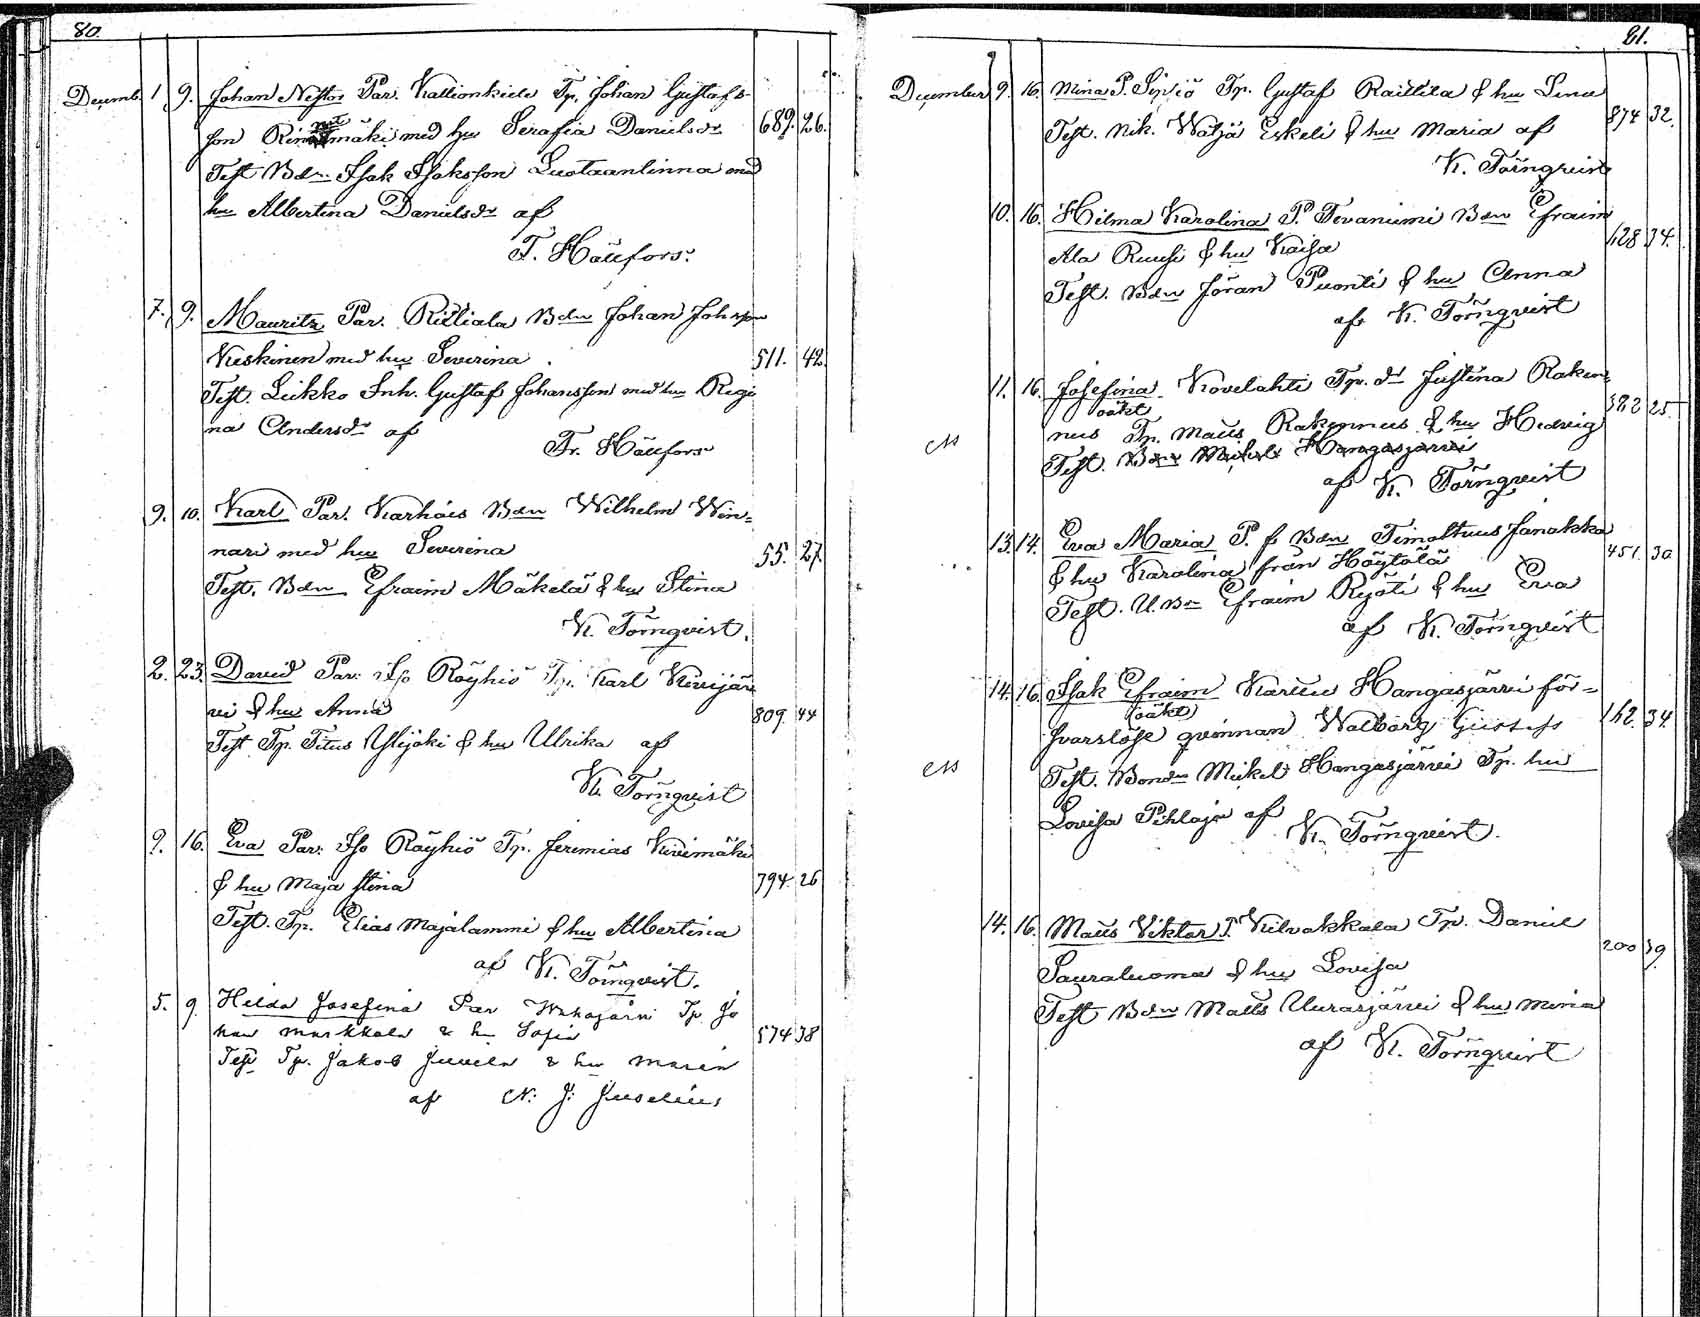 80.
Decemb. 1 9. Johan Nestor Par. Kallionkieli Tp. Johan Gustafs-
son med hu Serafia Danielsdr 689. 26.
Test Bdn. Isak Isaksson Luotaanlinna med
hu Albertina Danielsdr af
F. Hällfors.
7. 9. Mauritz Par. Riitiala Bdn Johan Johsson
Keskinen med hu Severina 511. 42.
Test. Leikko Inh. Gustaf Johansson med hu Regi
na Andersdr af
Fr. Hällfors
9. 10. Karl Par. Karhois Bdn Wilhelm Win=
nari med hu Severina 55. 27.
Test. Bdn Efraim Mäkelä & hu Stina
K. Törnqvist.
2. 23. David Par. Iso Röyhiö Tp. Karl Kivijär
vi & hu Anna 809. 44
Test Tp. Titus Ylijoki & hu Ulrika af
K. Törnqvist
9. 16. Eva Par. Iso Röyhiö Tp. Jeremias Kivimäki
& hu Maja Stina 794 26
Test. Tp. Elias Majalammi & hu Albertina
af K. Törnqvist.
5. 9 Hilda Josefina Par Tp Jo
han Markkola & hu Sofia 574 38
Test Tp. Jakob Juvela & hu Maria
af N. J. Juselius
81.
December 9. 16. Mina P. Sipiö Tp. Gustaf Raittila & hu Lena 874 32.
Test. Nik. Wäljä Eskeli & hu Maria af
K. Törnqvist
10. 16. Hilma Karolina P. Tevaniemi Bdn Efraim
Ala Ruusi & hu Kaisa 128 34.
Test. Bdn Jöran Puonti & hu Anna
af K. Törnqvist
11. 16. Josefina Kovelahti Tp. dr Justina Raken=
oäkt
nus Tp. Matts Rakennus & hu Hedvig 382 25.
Test. Bdn Mickel Hangasjärvi
af K. Törnqvist
13. 14. Eva Maria P. f Bdn Timotheus Janakka
& hu Karolina från Höytölä 451. 30
Test. U. Bn Efraim Rejöti & hu Eva
af K. Törnqvist
14. 16. Isak Efraim Hangasjärvi för=
(oäkt)
svarslöse qvinnan Walborg Gustafs 142. 34.
Test. Bondn Mickel Hangasjärvi Tp. hu
Lovisa Pihlaja af
K. Törnqvist.
14. 16. Matts Viktor P. Kilvakkala Tp. Daniel
Sauraluoma & hu Lovisa 200 39.
Test Bdn Matts Uurasjärvi & hu Mina
af K. Törnqvist